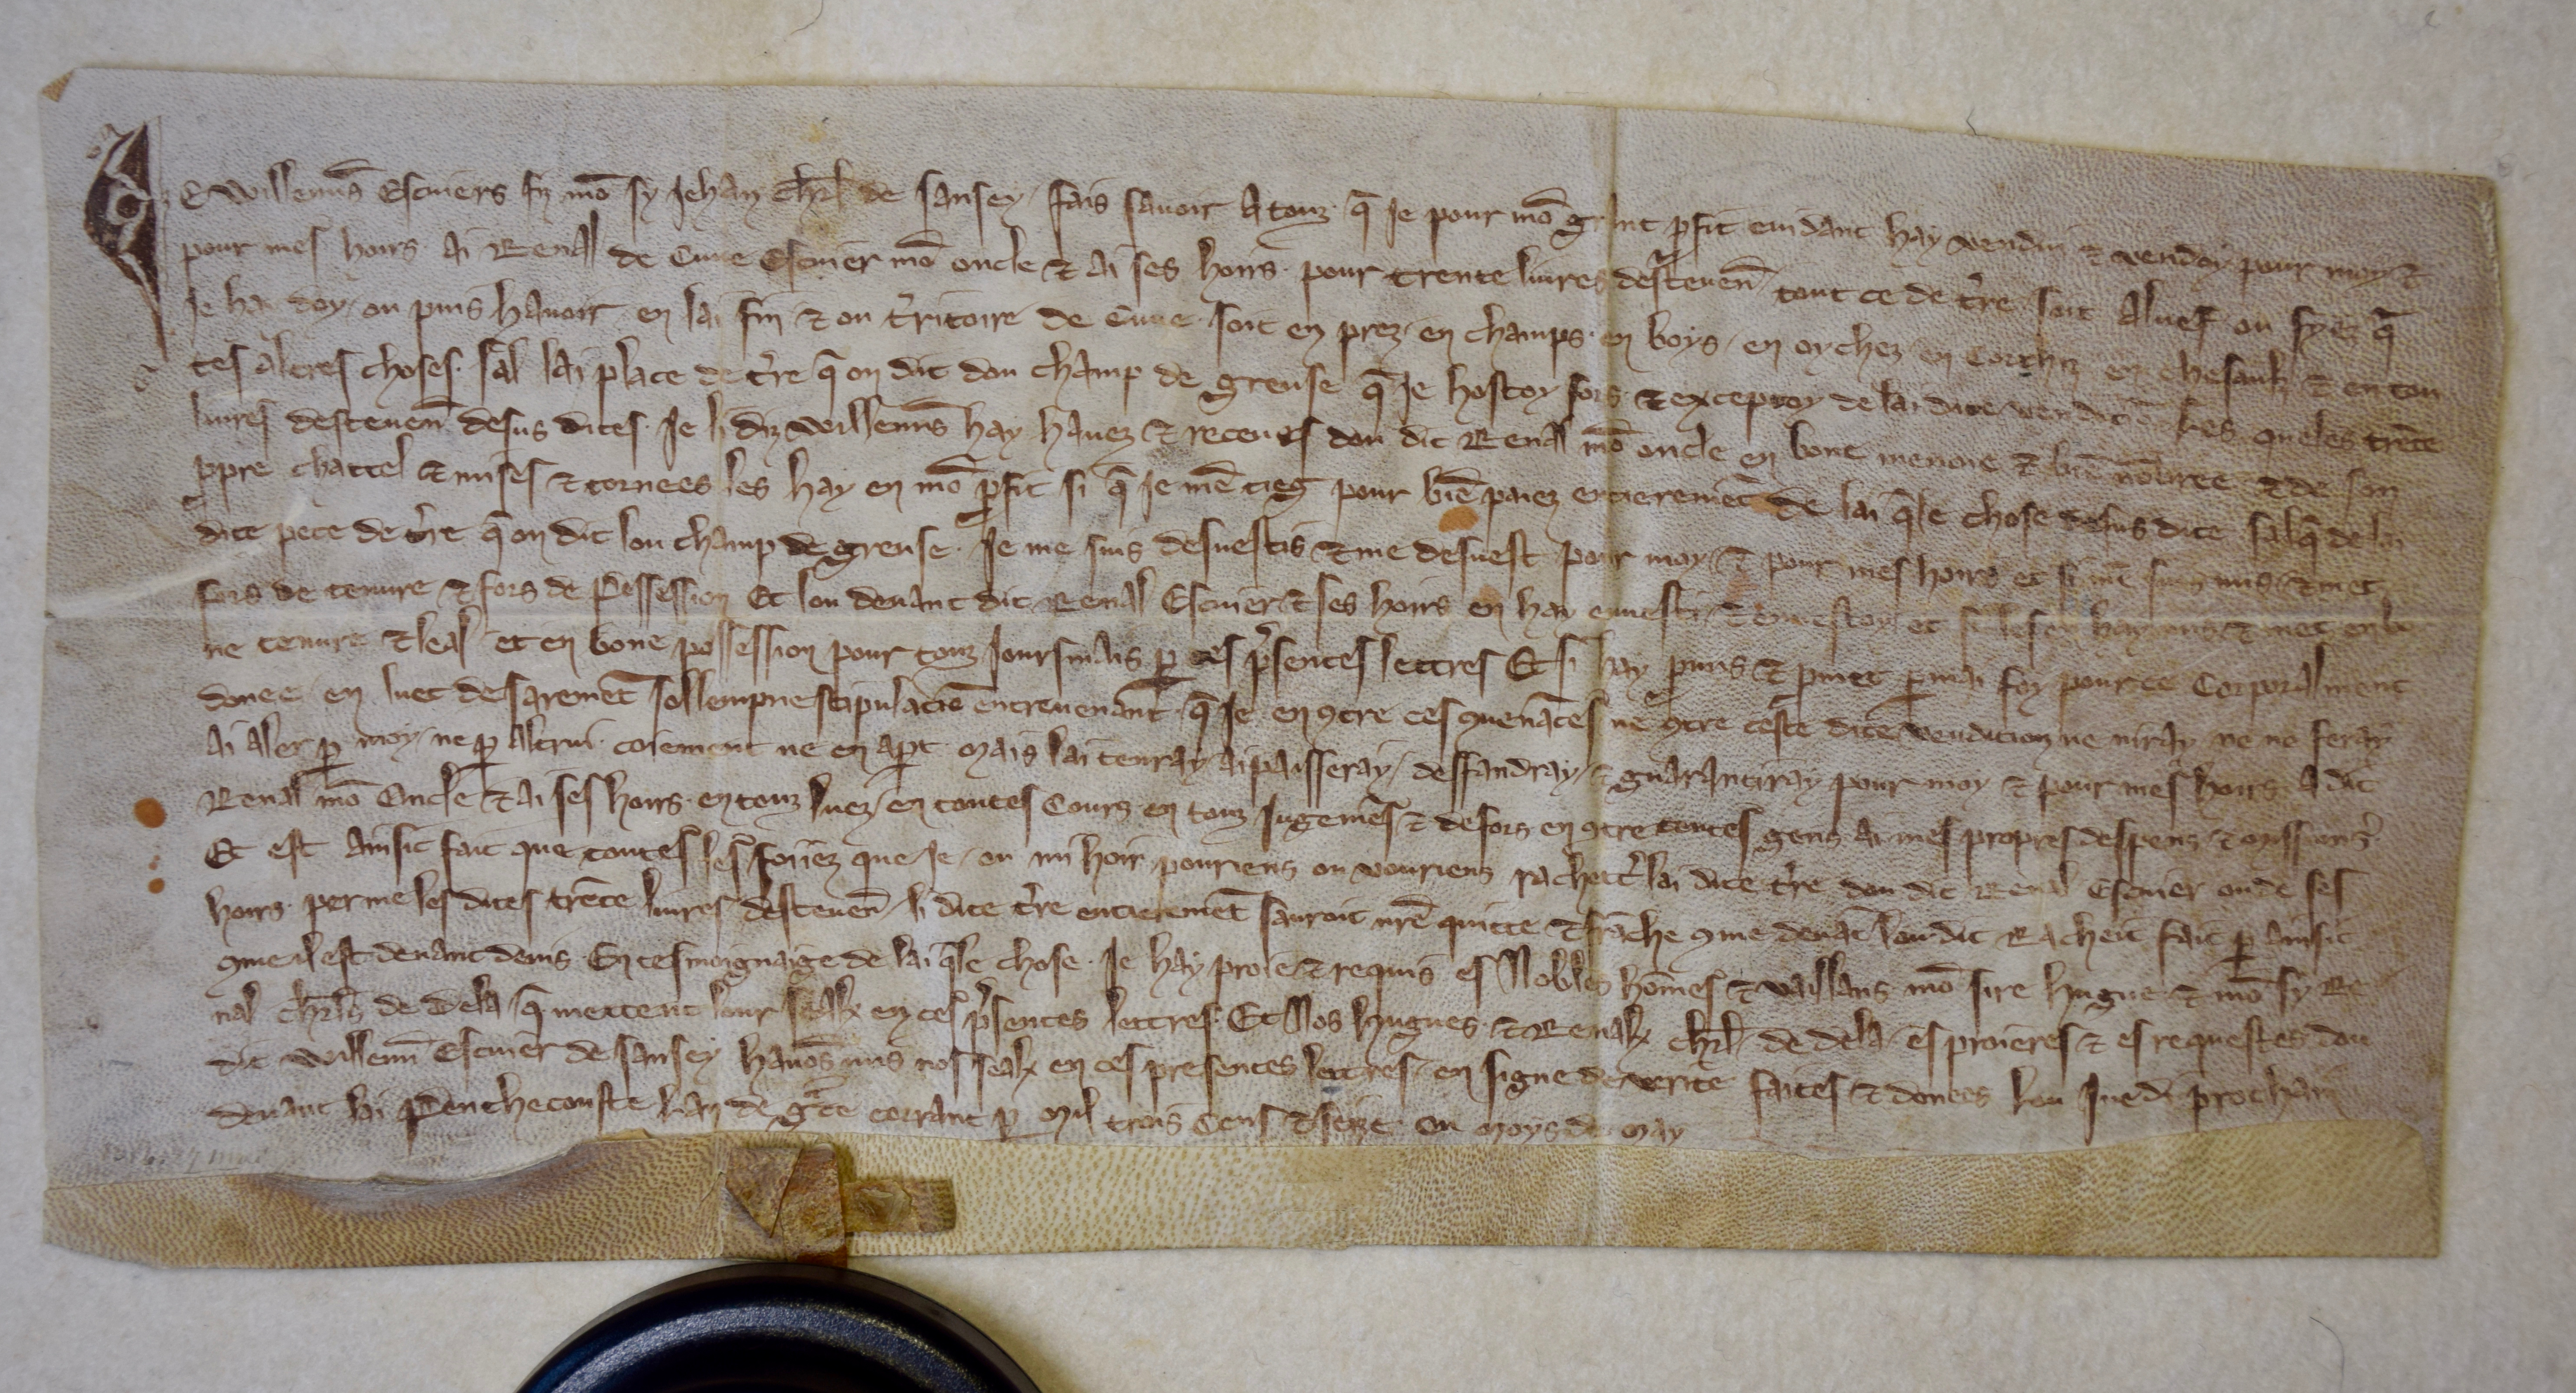 Je Willemīs Escuiers fiz mō sy Jehan chrl de sansey / fais savoir A touz q̄ Je pour mō grant ꝓfit euidant hay vendu ⁊ vendoy pour moy ⁊
pour mes hoirs Ai Renal de Cuue Escuier mō oncle ⁊ Ai ses hoirs pour trente liures destevēn tout ce de tre soit Aluef ou fyez q̄
Je hai doy ou puis havoir en lai fin ⁊ ou tritoire de Cuue soit en prez en champs en boys / en oychez en Corthiz en chesaulz ⁊ en tou
tes altres choses sal lai place de tre q̄ on dit dou champ de greuse q̄ Je hostoy fors ⁊ exceptoy de lai dite venditiō Les queles trēte
liures destevēn desus dites Je li diz Willemīs hay havez ⁊ receues dou dit Renal mō oncle en bone menoie ⁊ biē nōbree ⁊ de son
ꝓpre chattel ⁊ mises ⁊ tornees les hay en mō ꝓfit si q̄ Je mē tieg pour biē paiez entieremēt de lai q̄le chose desus dite salq̄ de lai
dite pece de tre q̄ on dit lou champ de greuse Je me suis desvestis ⁊ me desuest pour moy ⁊ pour mes hoirs et si mē suis mis ⁊ met
fors de tenure ⁊ fors de Possession Et lou deuant dit Renal Escuier ⁊ ses hoirs en hay enuesti ⁊ enuestoy et si les en hay mis ⁊ met en bo
ne tenure ⁊ leal et en bone possession pour touz Jours mais ꝑ ces p̄sentes lettres Et si hay ꝓmis ⁊ ꝓmet ꝑ mai foy pour ce Corporalment
donee en luet de sairemēt sollempne stipulaciō entrevenāt q̄ Je en ꝯtre ces ꝯuenāces ne ꝯtre ceste dite vendition ne niray ne ne feray
Ai aler ꝑ moy ne ꝑ altrui coiement ne en apt mais lai tenray Aipaisseray / deffandray ⁊ guarantiray pour moy ⁊ pour mes hoirs A dit
Renal mō Oncle ⁊ Ai ses hoirs en touz luez en toutes Cours en touz Jugemēs ⁊ defors en ꝯtre toutes gens Ai mes propres despens ⁊ missions
Et est Ainsit fait que toutes les foiiez que Je ou mi hoir pouriens ou vouriens rachetr lai dite tre dou dit Renal Escuier ou de ses
hoirs perme les dites trēte liures destevēn li dite tre entieremēt sauroit nrē quitte ⁊ frāche ꝯme deuāt lou dit Racheit fait ꝑ Ainsit
ꝯme il est deuant deuis En tesmoignaige de lai q̄le chose Je hay proie ⁊ requis es Nobles hōmes ⁊ vaillans mō sire hugue ⁊ mō sy Re
nal chrls de dela q̄ mettent lour sealx en ces p̄sentes lettres Et Nos hugues ⁊ Renalx chrl de dela es proieres ⁊ es requestes dou
dit Willemī Escuier de sansey havōs mis nos sealx en ces presentes lettres en signe de verite faites ⁊ donees lou Juedi prochain
deuant lai Penthecouste lan de gce corrant ꝑ mil trois Cens ⁊ seize ou moys de may